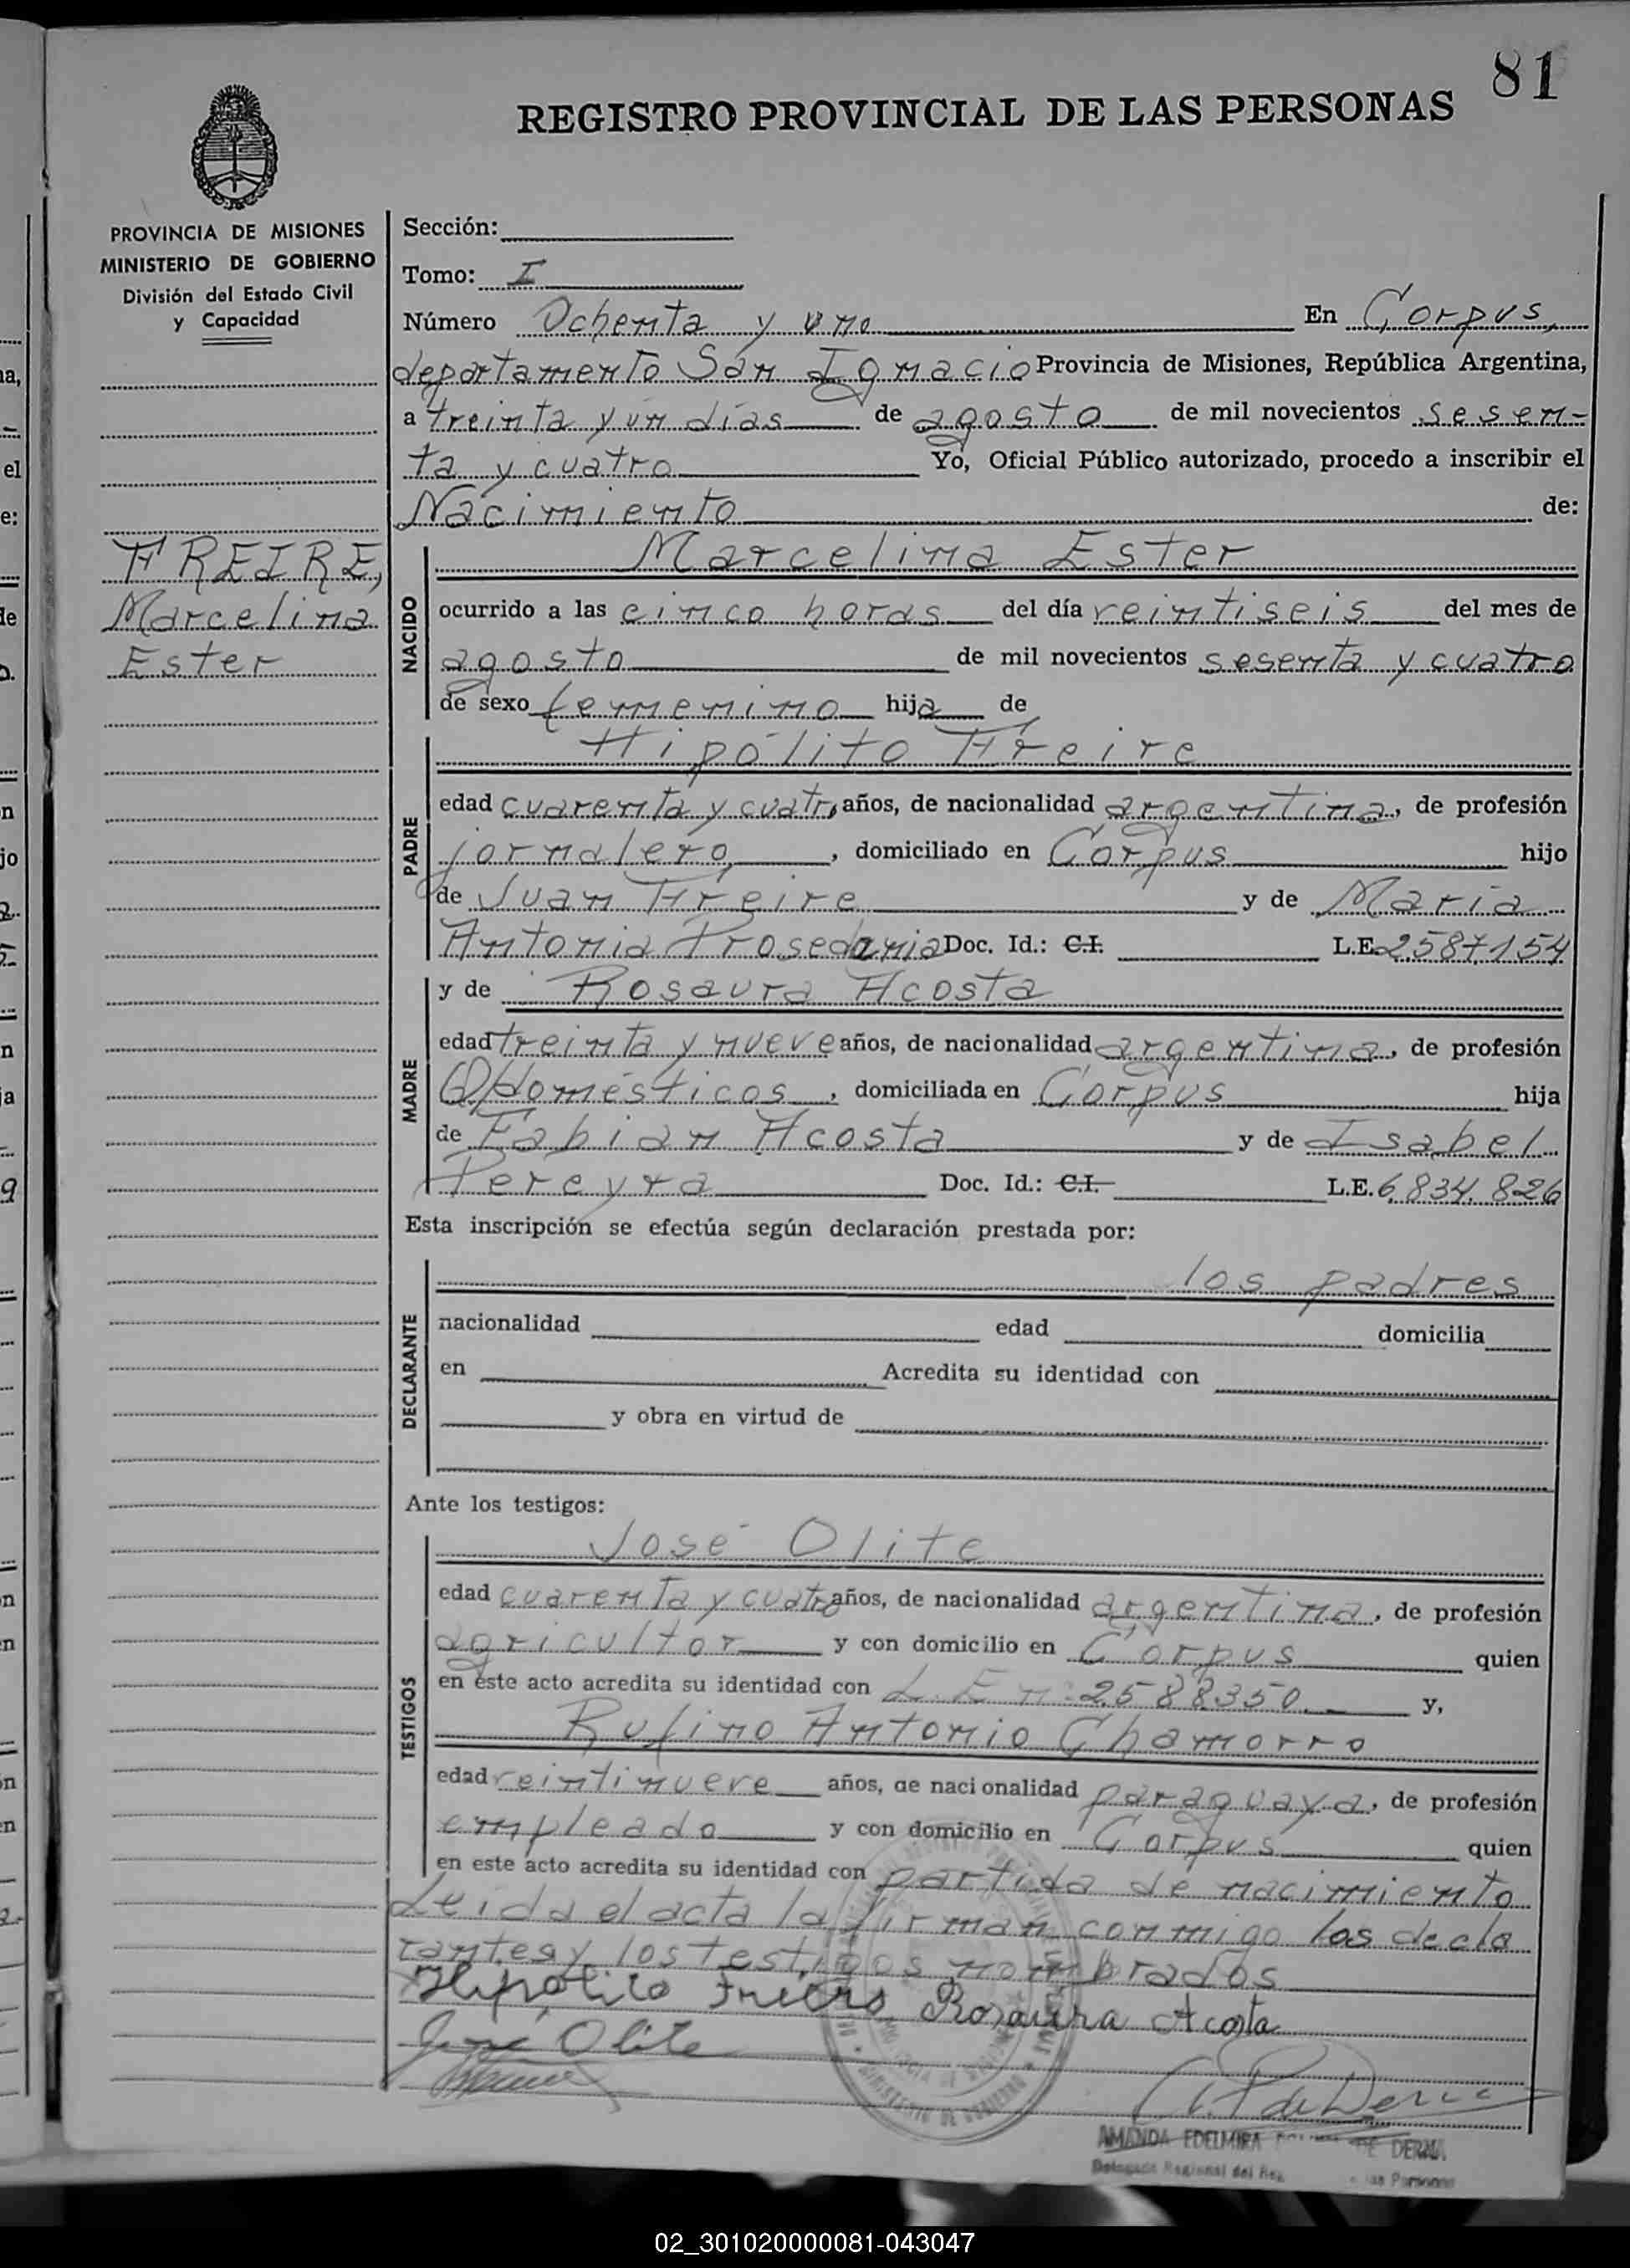 81
REGISTRO PROVINCIAL DE LAS PERSONAS
PROVINCIA DE MISIONES
MINISTERIO DE GOBIERNO
División del Estado Civil
y Capacidad
FREIRE,
Marcelina
Ester
Sección:
Tomo: I
Número Ochenta y uno En Corpus,
departamento San Ignacio Provincia de Misiones, República Argentina,
a treinta y un días de agosto de mil novecientos sesen-
ta y cuatro Yo, Oficial Público autorizado, procedo a inscribir el
Nacimiento de:
NACIDO
Marcelina Ester
ocurrido a las cinco horas del día veintiseis del mes de
agosto de mil novecientos sesenta y cuatro
de sexo femenino hija de
PADRE
Hipólito Freire
edad cuarenta y cuatro años, de nacionalidad argentina, de profesión
jornalero, domiciliado en Corpus hijo
de Juan Freire y de María
Antonia Doc. Id.: C.I. L.E. 2.587.154
MADRE
y de Rosaura Acosta
edad treinta y nueve años, de nacionalidad argentina, de profesión
Q/domésticos, domiciliada en Corpus hija
de Fabian Acosta y de Isabel
Pereyra Doc. Id.: C.I. L.E. 6.834.826
Esta inscripción se efectúa según declaración prestada por:
DECLARANTE
los padres
nacionalidad edad domicilia
en Acredita su identidad con
y obra en virtud de
Ante los testigos:
TESTIGOS
José Olite
edad cuarenta y cuatro años, de nacionalidad argentina, de profesión
agricultor y con domicilio en Corpus quien
en este acto acredita su identidad con L.E n: 2.588.350. y,
Rufino Antonio Chamorro
edad veintinueve años, de nacionalidad paraguaya, de profesión
empleado y con domicilio en Corpus quien
en este acto acredita su identidad con partida de nacimiento
Leida el acta la firman conmigo los decla
rantes y los testigos nombrados
Hipólito Freire Rosaura Acosta
José Olite
AMANDA EDELMIRA DE DERNA
Delegada Regional del Reg. las Personas
02_301020000081-043047